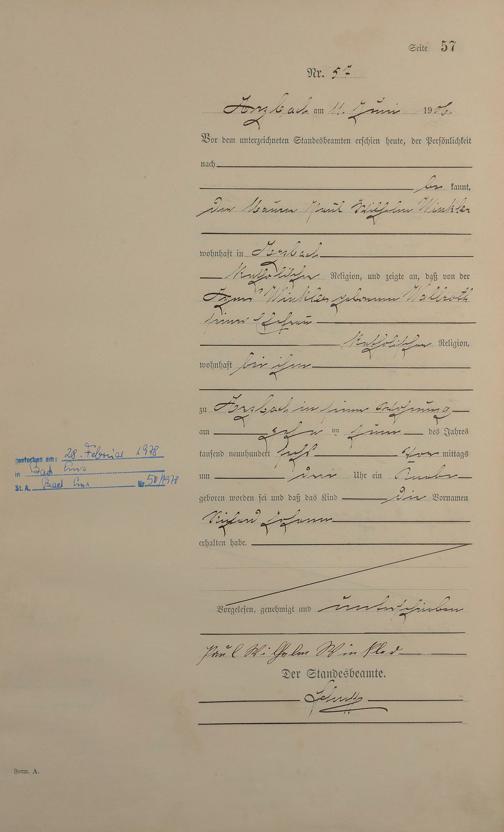 Seite 57
Nr. 57
am 11. Juni 1906.
Vor dem unterzeichneten Standesbeamten erschien heute, der Persönlichkeit
nach
be kannt,
der Maurer Paul Wilhelm Winkler
wohnhaft in
Katholischer Religion, und zeigte an, daß von der
Winkler geborenen
seiner Ehefrau
Katholischer Religion,
wohnhaft bei ihm
zu in seiner Wohnung
am Juni des Jahres
tausend neunhundert sechs Vor mittags
um drei Uhr ein Knabe
geboren worden sei und daß das Kind die Vornamen
Johann
erhalten habe.
Vorgelesen, genehmigt und unterschrieben
Paul Wilhelm Winkler
Der Standesbeamte.
gestorben am: 28. Februar 1978
in Bad Ems
St. A. Bad Ems Nr. 50/1978
Form. A.